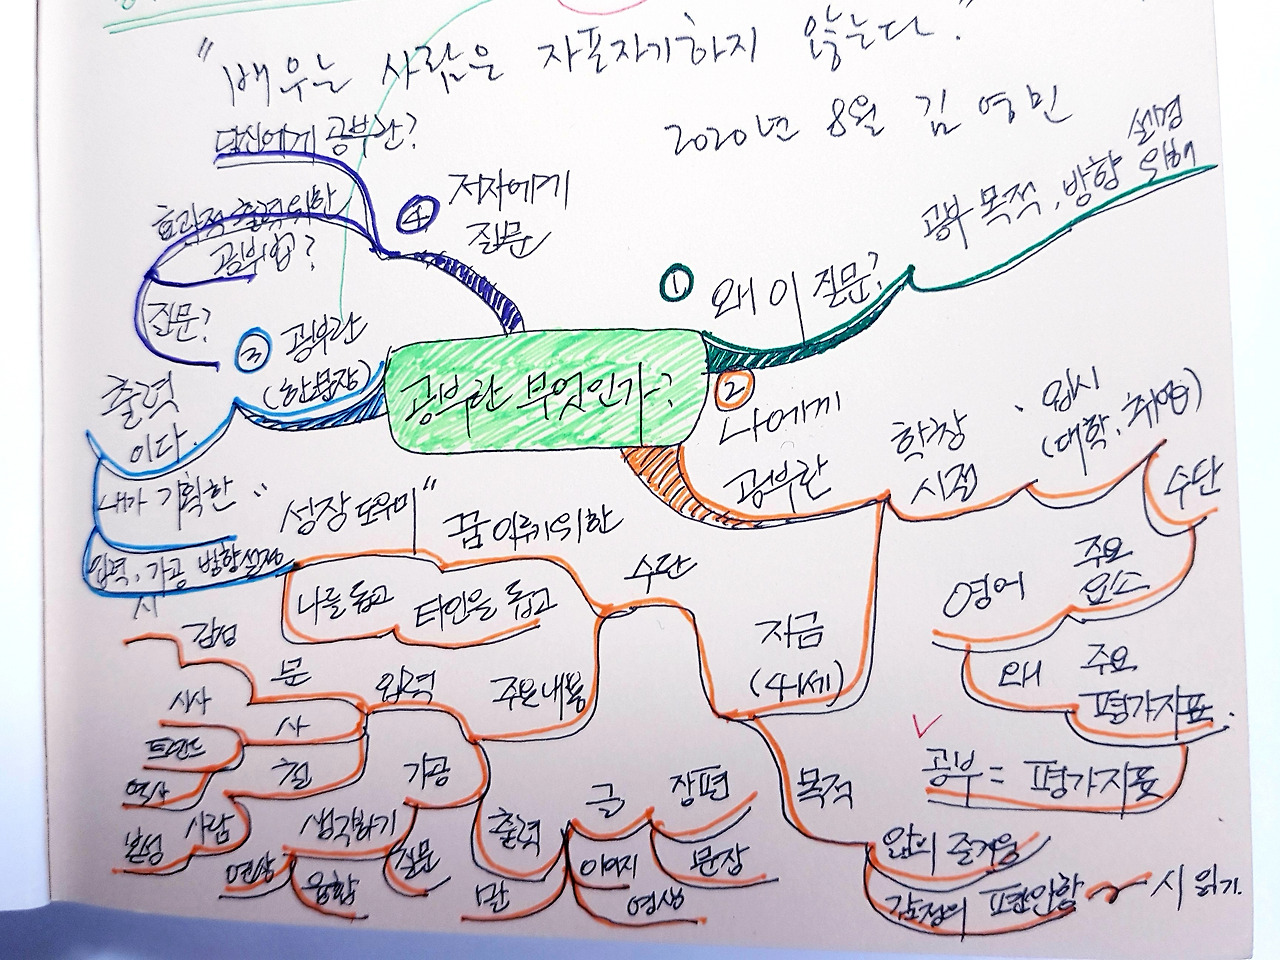 "배우는 사람은 자포자기하지 않는다."
2020년 8월 김영민
당신에게 공부란?
④ 저자에게
질문
효과적 출력 위한
공부법?
질문?
① 왜 이 질문?
공부 목적, 방향 설정
위해
공부란 무엇인가?
③ 공부란
(한문장)
출력
이다.
내가 기획한
입력, 가공 방향설정
② 나에게
공부란
학창
시절
입시
(대학, 취업)
수단
주요
요소
영어
왜
주요
평가지표.
공부 = 평가지표
지금
(41세)
수단
꿈 이루기 위한
"성장 도우미"
나를 돕고
타인을 돕고
주요 내용
입력
문
시
감성
사
시사
트렌드
역사
철
사람
가공
생각하기
연상
융합
질문
출력
글
장편
문장
말
이미지
영상
목적
앎의 즐거움
감정의 편안함 ~ 시 읽기.